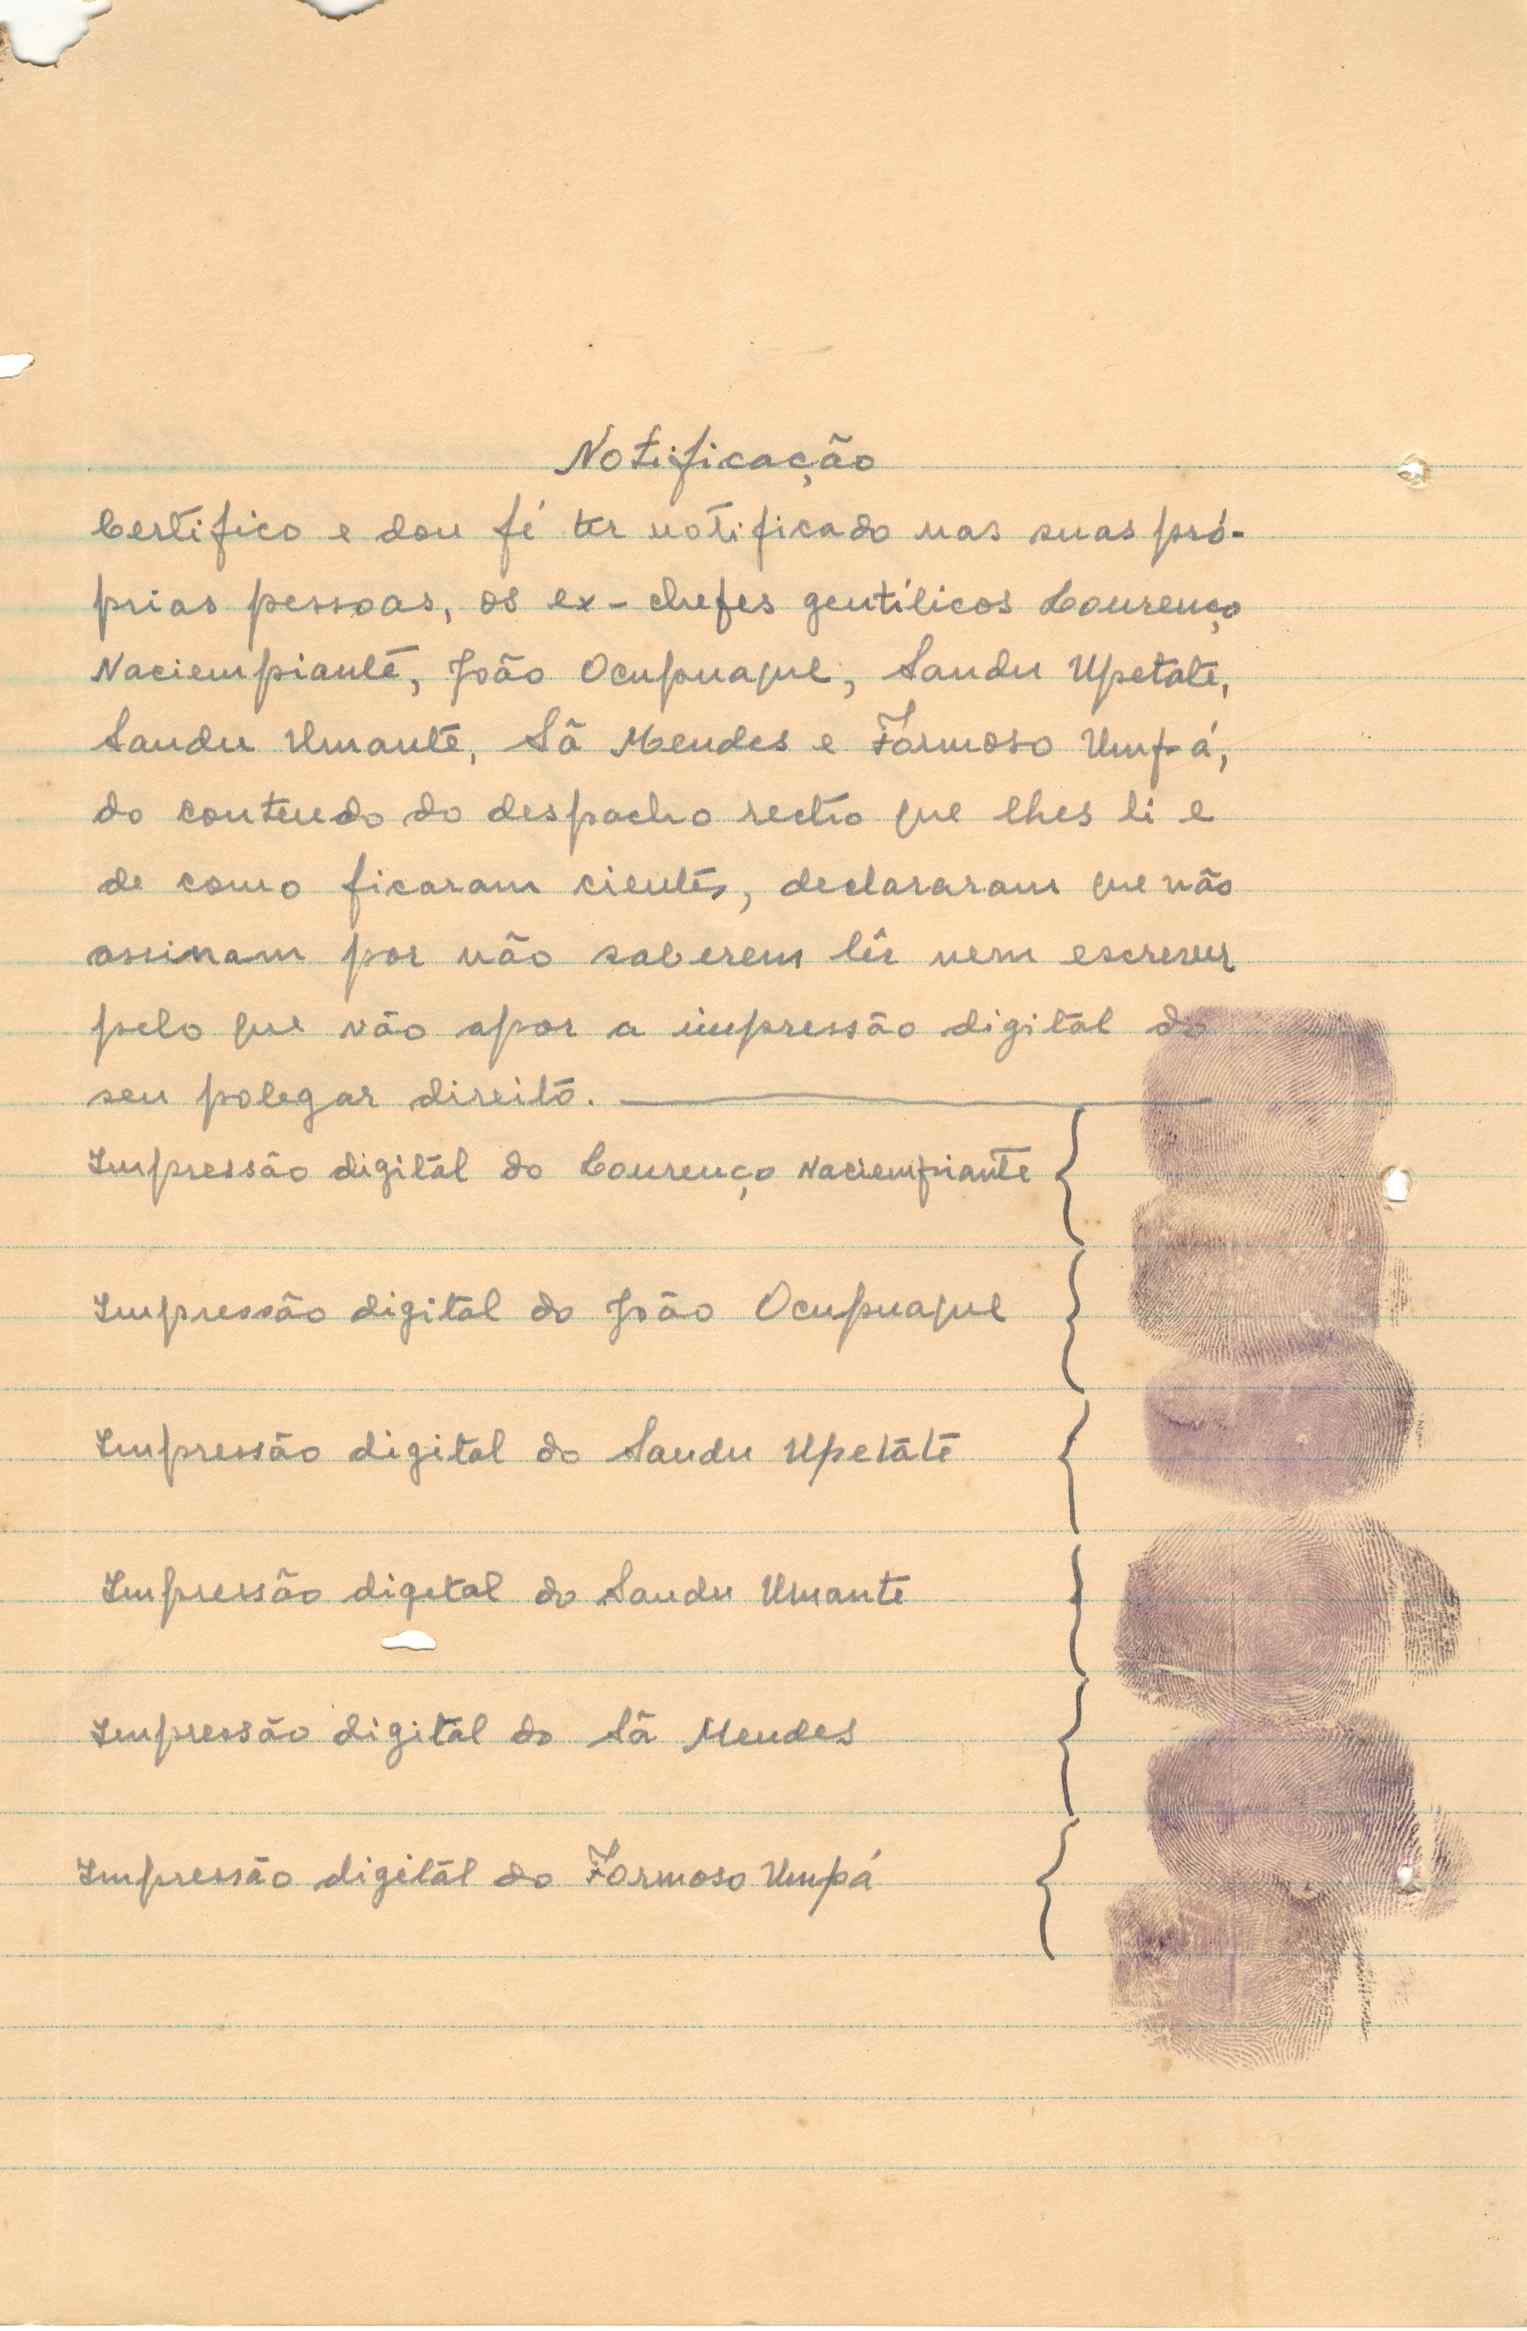 Notificação
Certifico e dou fé ter notificado nas suas pró-
prias pessoas, os ex-chefes gentílicos Lourenço
Naciempiante, João Ocupuaque, Sandu Upetate,
Sandu Umante, Sã Mendes e Formoso Umpá,
do conteudo do despacho rectro que lhes li e
de como ficaram cientes, declararam que não
assinam por não saberem lêr nem escrever
pelo que vão apor a impressão digital do
seu polegar direito.
Impressão digital do Lourenço Naciempiante
Impressão digital do João Ocupuaque
Impressão digital do Sandu Upetate
Impressão digital do Sandu Umante
Impressão digital do Sã Mendes
Impressão digital do Formoso Umpá